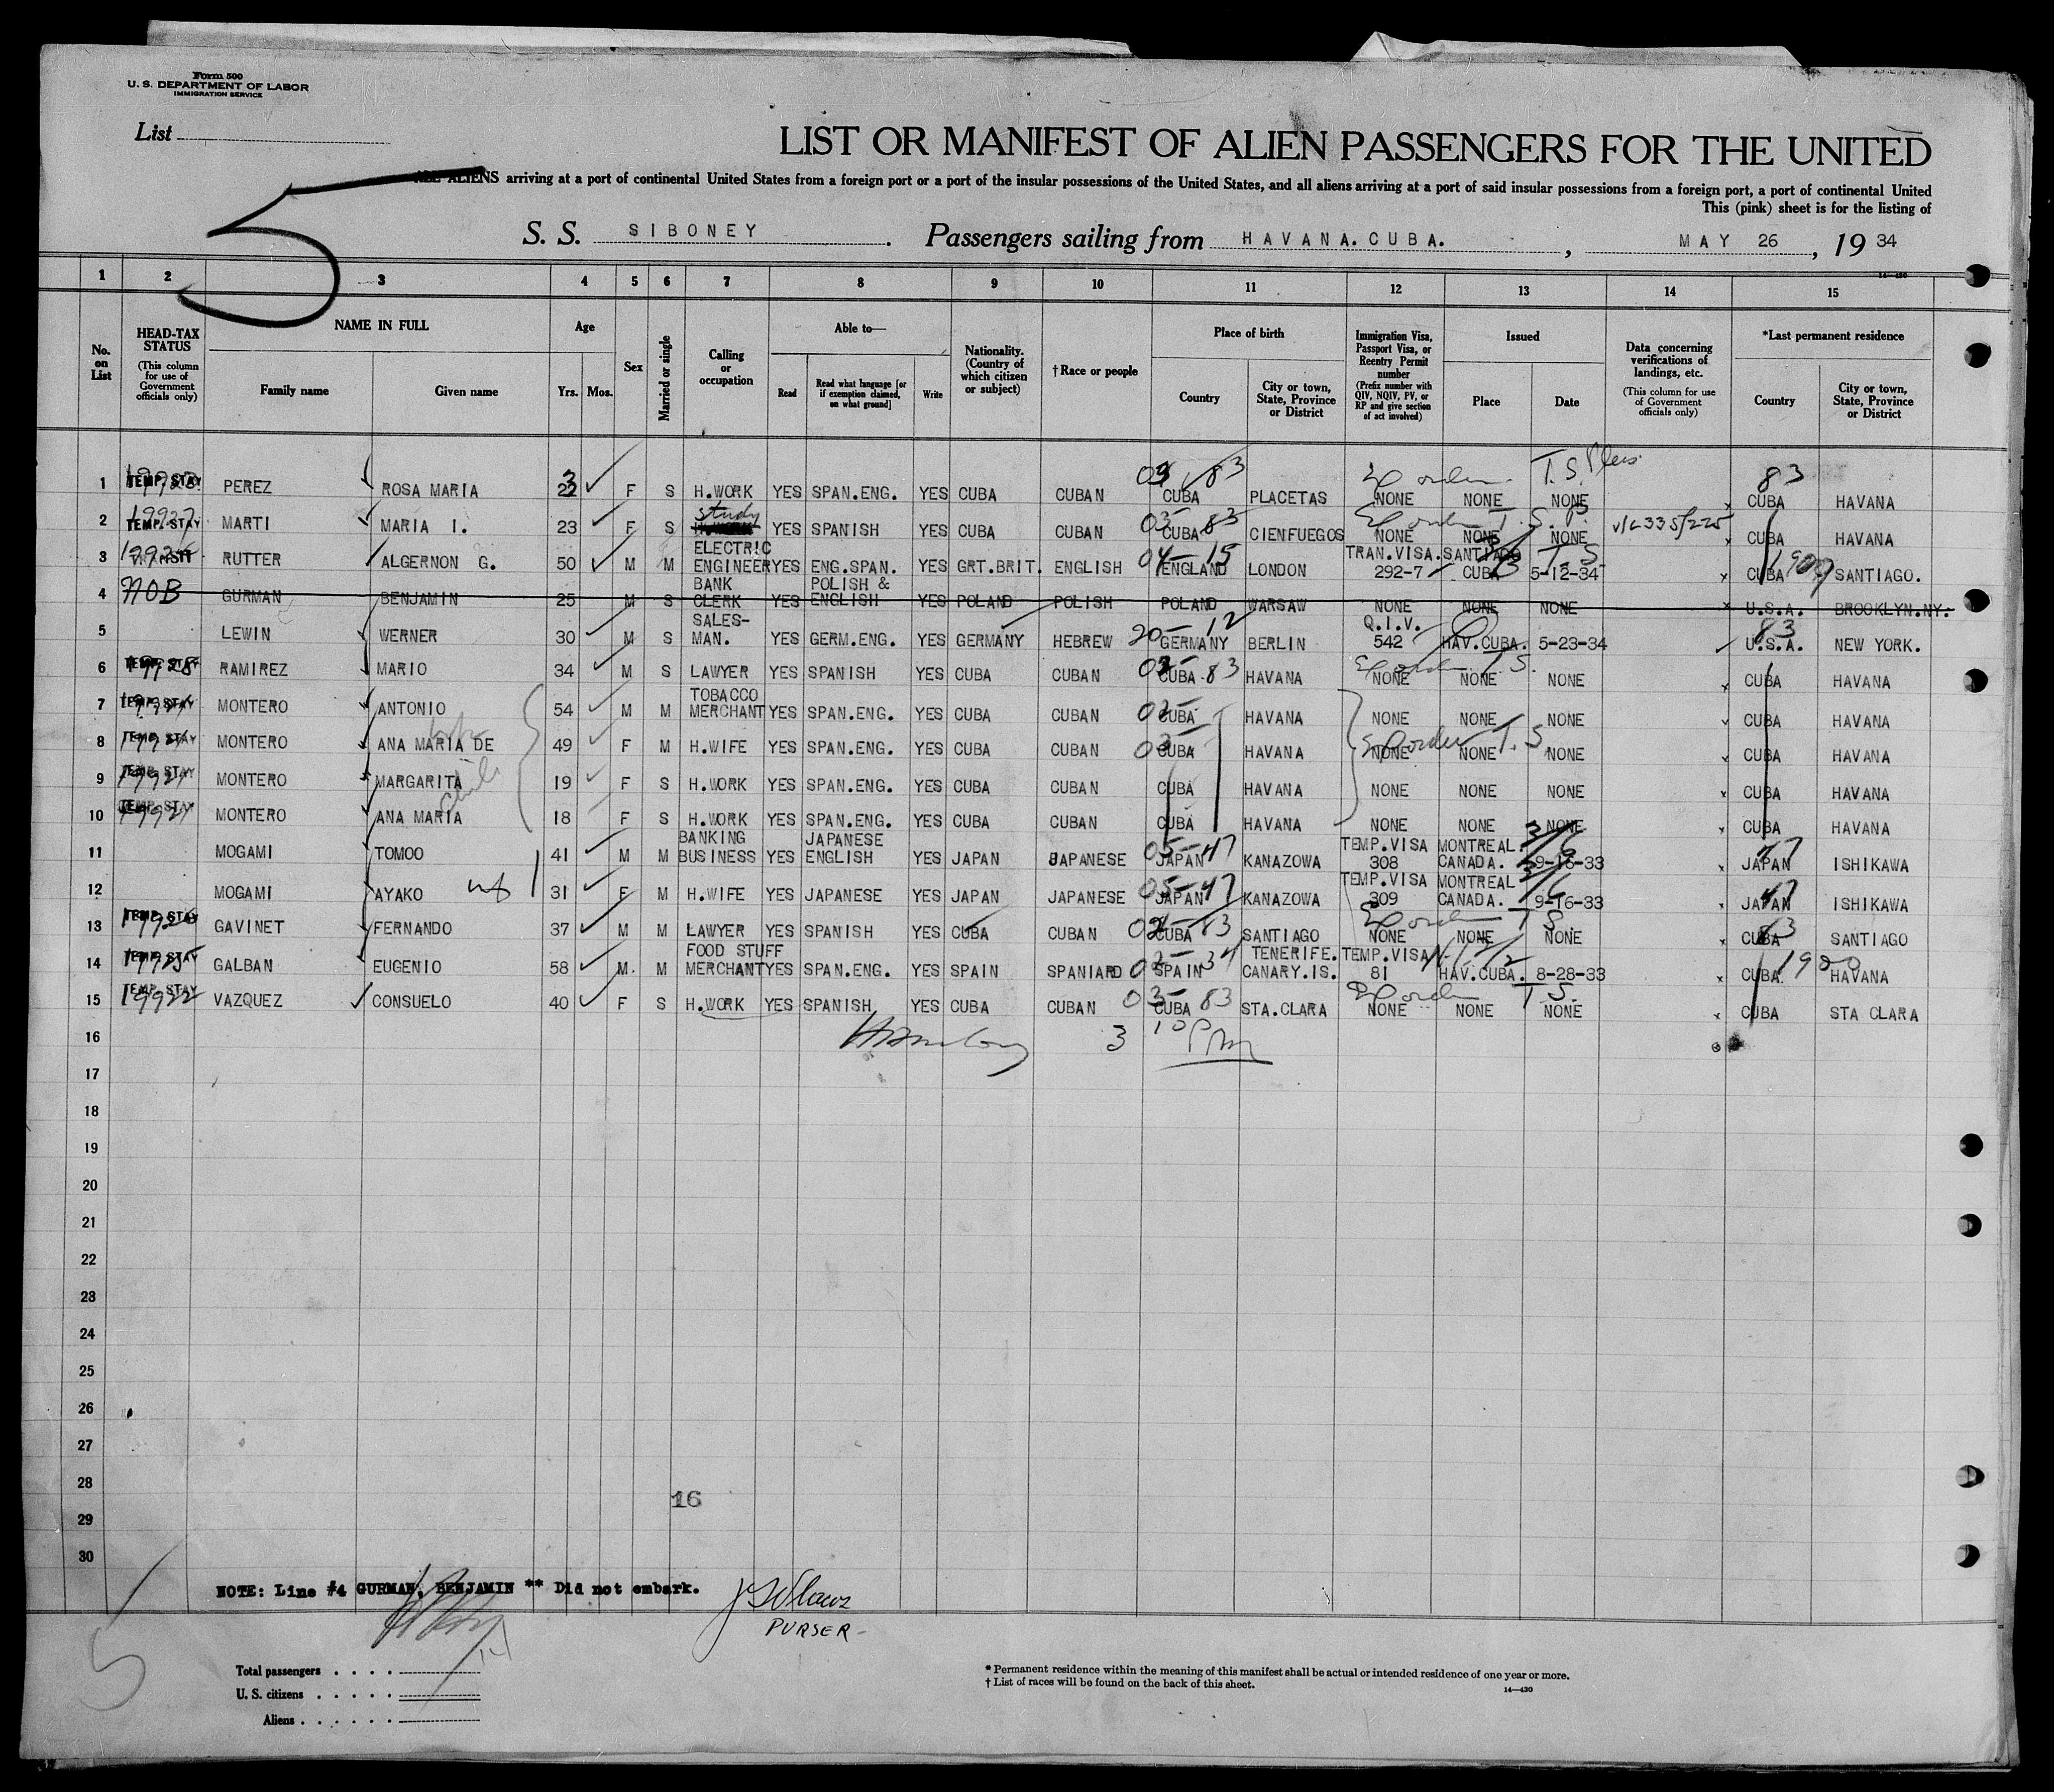 Form 500
U. S. DEPARTMENT OF LABOR
IMMIGRATION SERVICE
List
5
LIST OR MANIFEST OF ALIEN PASSENGERS FOR THE UNITED
ALL ALIENS arriving at a port of continental United States from a foreign port or a port of the insular possessions of the United States, and all aliens arriving at a port of said insular possessions from a foreign port, a port of continental United
This (pink) sheet is for the listing of
S. S. SIBONEY. Passengers sailing from HAVANA.CUBA. , MAY 26 , 19 34
14-430
1 2 3 4 5 6 7 8 9 10 11 12 13 14 15
No. on List
HEAD-TAX STATUS (This column for use of Government officials only)
NAME IN FULL Family name Given name
Age Yrs. Mos.
Sex
Married or single
Calling or occupation
Able to— Read Read what language [or if exemption claimed, on what ground] Write
Nationality. (Country of which citizen or subject)
†Race or people
Place of birth Country City or town, State, Province or District
Immigration Visa, Passport Visa, or Reentry Permit number (Prefix number with QIV, NQIV, PV, or RP and give section of act involved)
Issued Place Date
Data concerning verifications of landings, etc. (This column for use of Government officials only)
*Last permanent residence Country City or town, State, Province or District
1 TEMP. STAY PEREZ ROSA MARIA 22 3 F S H.WORK YES SPAN.ENG. YES CUBA CUBAN 83 CUBA PLACETAS NONE NONE NONE T.S. 83 CUBA HAVANA
2 TEMP. STAY MARTI MARIA I. 23 F S study YES SPANISH YES CUBA CUBAN 03 CUBA 83 CIENFUEGOS NONE NONE NONE CUBA HAVANA
3 RUTTER ALGERNON G. 50 M M ELECTRIC ENGINEER YES ENG.SPAN. YES GRT.BRIT. ENGLISH 04-15 ENGLAND LONDON TRAN.VISA. 292-7 SANTIAGO CUBA T.S 5-12-34 CUBA SANTIAGO.
4 NOB GURMAN BENJAMIN 25 M S BANK CLERK YES POLISH & ENGLISH YES POLAND POLISH POLAND WARSAW NONE NONE NONE U.S.A. BROOKLYN.NY.
5 LEWIN WERNER 30 M S SALES-MAN. YES GERM.ENG. YES GERMANY HEBREW 20-12 GERMANY BERLIN Q.I.V. 542 HAV.CUBA. 5-23-34 83 U.S.A. NEW YORK.
6 TEMP. STAY RAMIREZ MARIO 34 M S LAWYER YES SPANISH YES CUBA CUBAN CUBA 83 HAVANA NONE NONE NONE T.S. CUBA HAVANA
7 TEMP. STAY MONTERO ANTONIO 54 M M TOBACCO MERCHANT YES SPAN.ENG. YES CUBA CUBAN CUBA HAVANA NONE NONE NONE CUBA HAVANA
8 TEMP. STAY MONTERO ANA MARIA DE 49 F M H.WIFE YES SPAN.ENG. YES CUBA CUBAN CUBA HAVANA NONE NONE T.S. NONE CUBA HAVANA
9 TEMP. STAY MONTERO MARGARITA 19 F S H.WORK YES SPAN.ENG. YES CUBA CUBAN CUBA HAVANA NONE NONE NONE CUBA HAVANA
10 TEMP. STAY MONTERO ANA MARIA 18 F S H.WORK YES SPAN.ENG. YES CUBA CUBAN CUBA HAVANA NONE NONE NONE CUBA HAVANA
11 MOGAMI TOMOO 41 M M BANKING BUSINESS YES JAPANESE ENGLISH YES JAPAN JAPANESE 05-47 JAPAN KANAZOWA TEMP.VISA 308 MONTREAL. CANADA. 9-16-33 JAPAN ISHIKAWA
12 MOGAMI AYAKO wf 31 F M H.WIFE YES JAPANESE YES JAPAN JAPANESE 05-47 JAPAN KANAZOWA TEMP.VISA 309 MONTREAL CANADA. 9-16-33 47 JAPAN ISHIKAWA
13 TEMP. STAY GAVINET FERNANDO 37 M M LAWYER YES SPANISH YES CUBA CUBAN CUBA 83 SANTIAGO NONE NONE NONE T.S. 83 CUBA SANTIAGO
14 TEMP. STAY GALBAN EUGENIO 58 M. M FOOD STUFF MERCHANT YES SPAN.ENG. YES SPAIN SPANIARD SPAIN TENERIFE. CANARY.IS. TEMP.VISA 81 HAV.CUBA. 8-28-33 CUBA. HAVANA
15 TEMP. STAY 19922 VAZQUEZ CONSUELO 40 F S H.WORK YES SPANISH YES CUBA CUBAN 03 CUBA 83 STA.CLARA NONE NONE NONE T.S. CUBA STA CLARA
16 3 10 PM
17
18
19
20
21
22
23
24
25
26
27
28
16
29
30
NOTE: Line #4 GURMAN, BENJAMIN ** Did not embark.
PURSER
Total passengers . . . .
U. S. citizens . . . . .
Aliens . . . . . .
* Permanent residence within the meaning of this manifest shall be actual or intended residence of one year or more.
† List of races will be found on the back of this sheet.
14—430